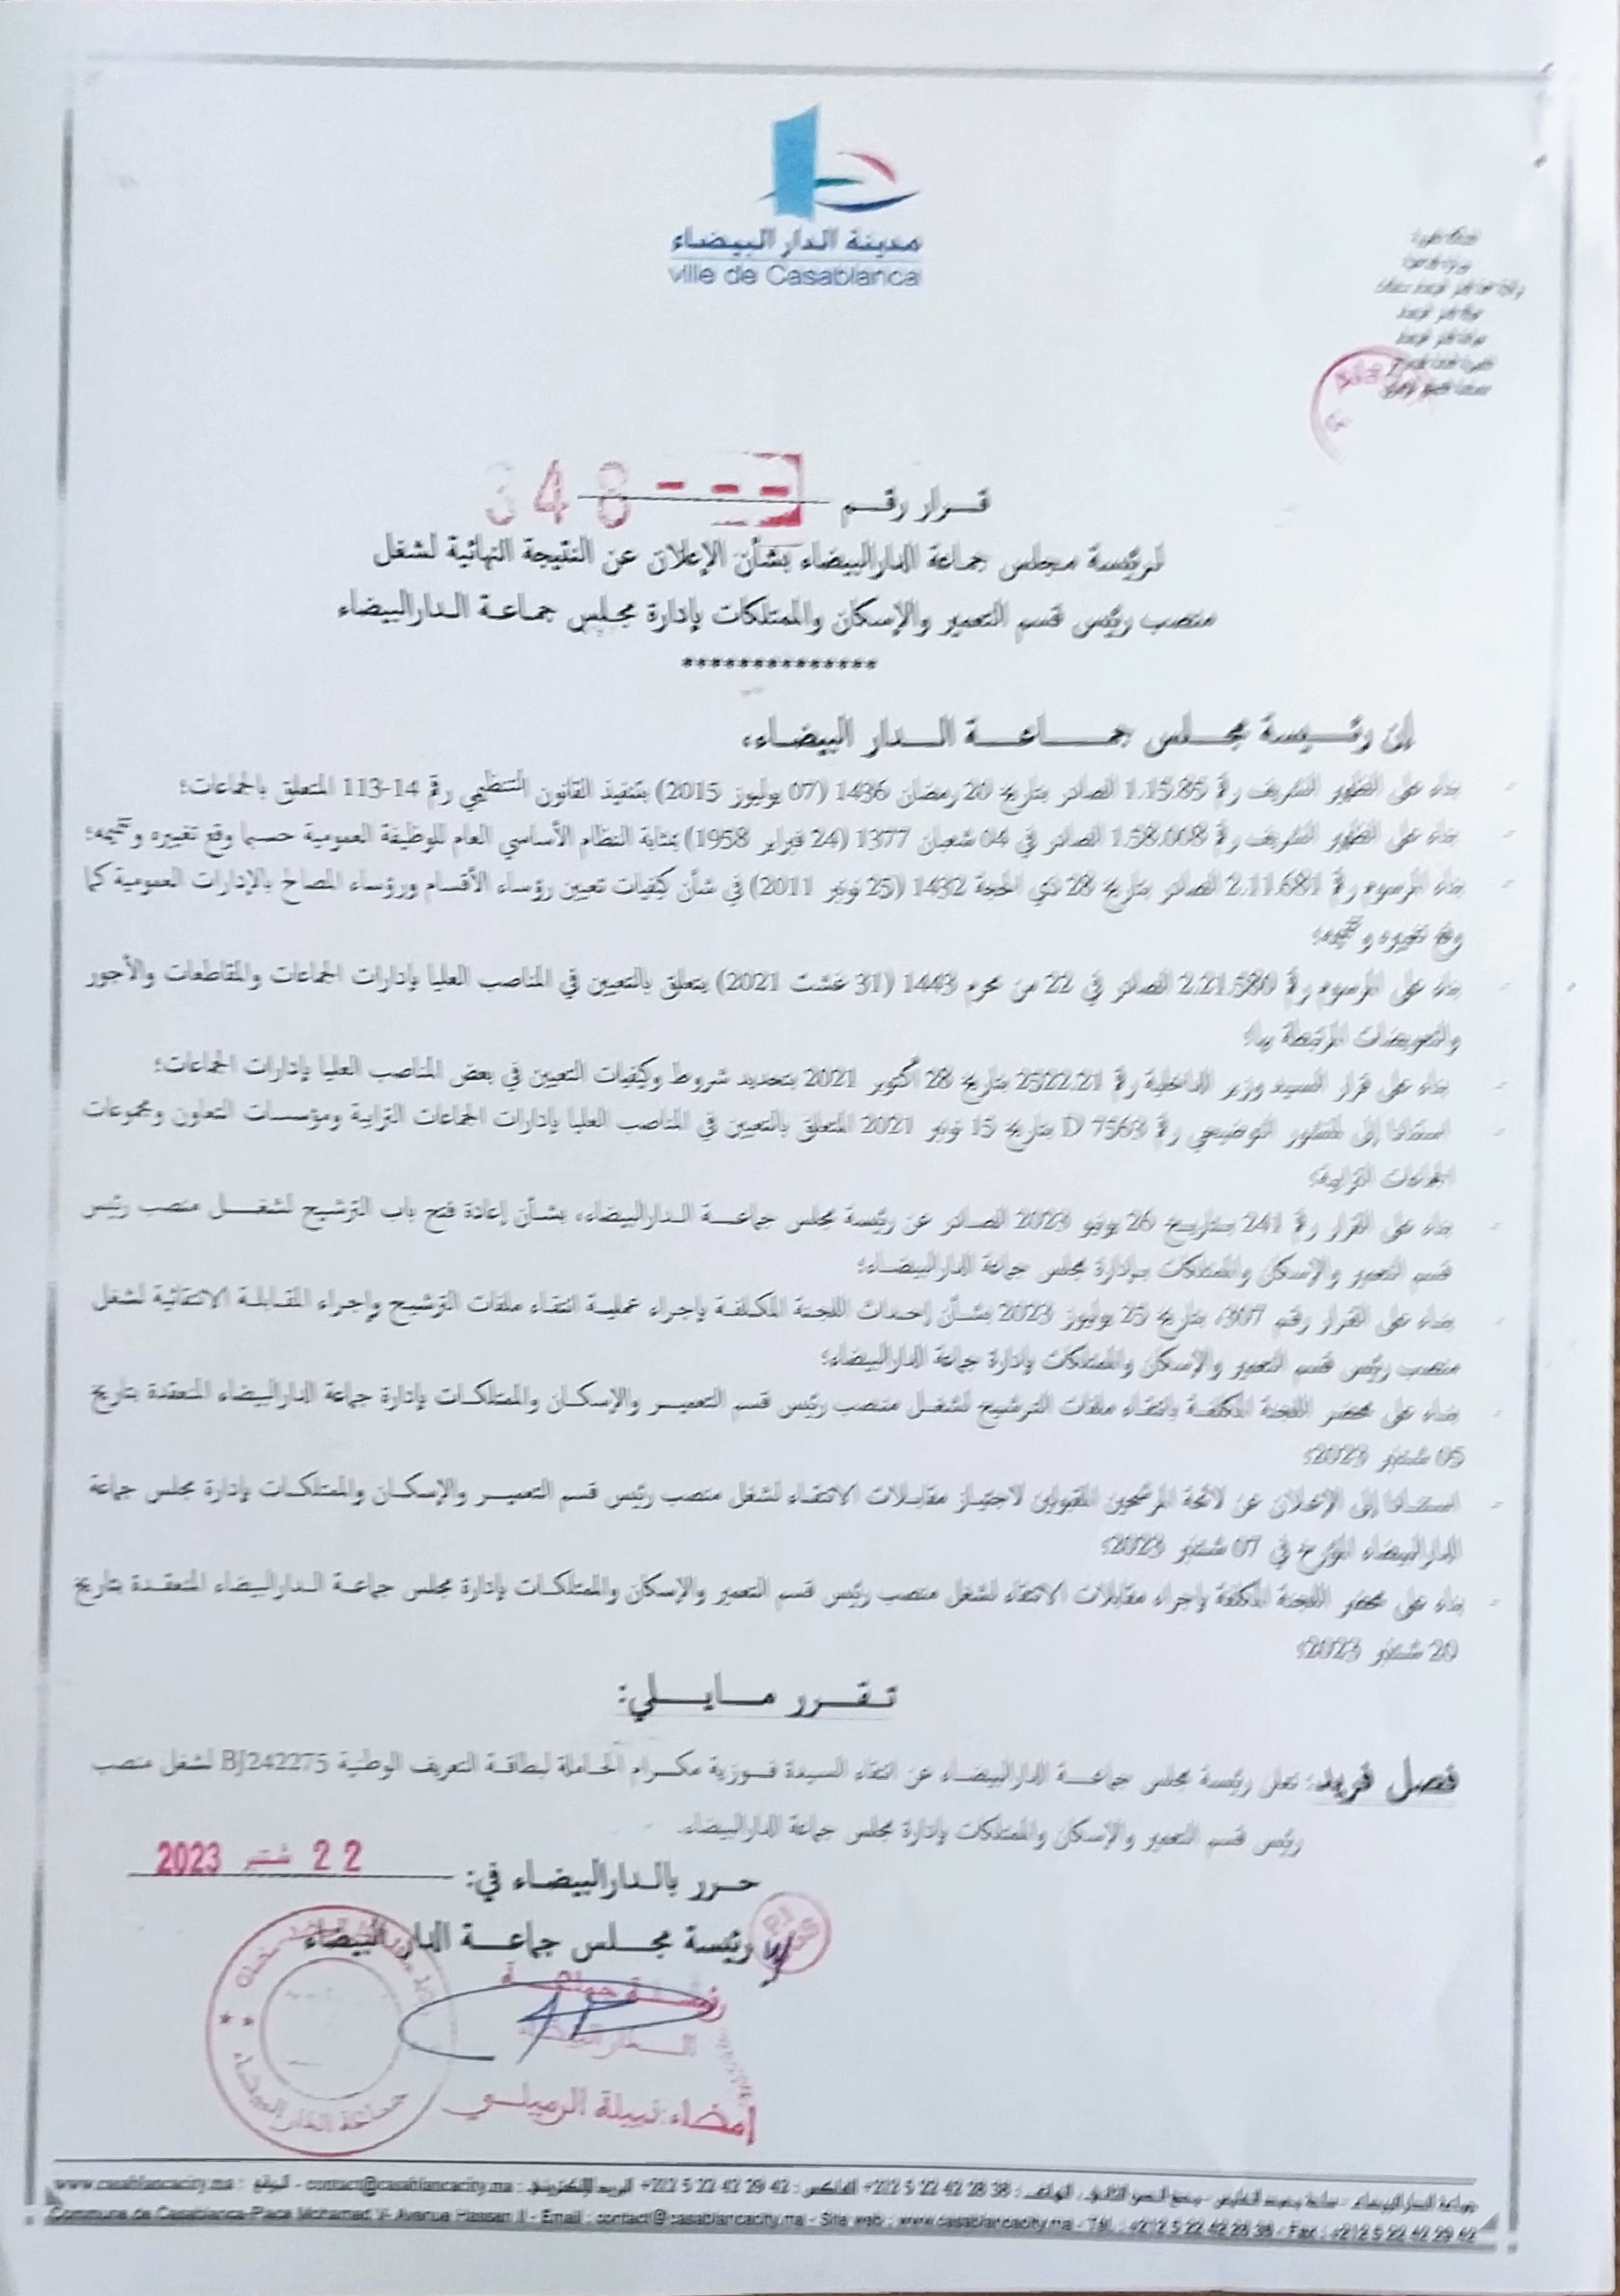 مدينة الدار البيضاء
ville de Casablanca
المملكة المغربية
وزارة الداخلية
عمالة الدار البيضاء
جماعة الدار البيضاء
قـــرار رقــم 348
لرئيسة مجلس جماعة الدارالبيضاء بشأن الإعلان عن النتيجة النهائية لشغل
منصب رئيس قسم التعمير والإسكان والممتلكات بإدارة مجلس جماعة الدارالبيضاء
**************
إن رئيسة مجلس جماعة الدار البيضاء،
- بناء على الظهير الشريف رقم 1.15.85 الصادر بتاريخ 20 رمضان 1436 (07 يوليوز 2015) بتنفيذ القانون التنظيمي رقم 14-113 المتعلق بالجماعات؛
- بناء على الظهير الشريف رقم 1.58.008 الصادر في 04 شعبان 1377 (24 فبراير 1958) بمثابة النظام الأساسي العام للوظيفة العمومية حسبما وقع تغييره وتتميمه؛
- بناء المرسوم رقم 2.11.681 الصادر بتاريخ 28 ذي الحجة 1432 (25 نونبر 2011) في شأن كيفيات تعيين رؤساء الأقسام ورؤساء المصالح بالإدارات العمومية كما
وقع تغييره وتتميمه؛
- بناء على المرسوم رقم 2.21.580 الصادر في 22 من محرم 1443 (31 غشت 2021) يتعلق بالتعيين في المناصب العليا بإدارات الجماعات والمقاطعات والأجور
والتعويضات المرتبطة بها؛
- بناء على قرار السيد وزير الداخلية رقم 2522.21 بتاريخ 28 أكتوبر 2021 بتحديد شروط وكيفيات التعيين في بعض المناصب العليا بإدارات الجماعات؛
- استنادا إلى المنشور التوضيحي رقم D 7563 بتاريخ 15 نونبر 2021 المتعلق بالتعيين في المناصب العليا بإدارات الجماعات الترابية ومؤسسات التعاون ومجموعات
الجماعات الترابية؛
- بناء على القرار رقم 241 بتاريخ 26 يونيو 2023 الصادر عن رئيسة مجلس جماعة الدارالبيضاء، بشأن إعادة فتح باب الترشيح لشغل منصب رئيس
قسم التعمير والإسكان والممتلكات بإدارة مجلس جماعة الدارالبيضاء؛
- بناء على القرار رقم 307، بتاريخ 25 يوليوز 2023 بشأن إحداث اللجنة المكلفة بإجراء عملية انتقاء ملفات الترشيح وإجراء المقابلة الانتقائية لشغل
منصب رئيس قسم التعمير والإسكان والممتلكات بإدارة جماعة الدارالبيضاء؛
- بناء على محضر اللجنة المكلفة بانتقاء ملفات الترشيح لشغل منصب رئيس قسم التعمير والإسكان والممتلكات بإدارة جماعة الدارالبيضاء المنعقدة بتاريخ
05 شتنبر 2023؛
- استنادا إلى الإعلان عن لائحة المرشحين المقبولين لاجتياز مقابلات الانتقاء لشغل منصب رئيس قسم التعمير والإسكان والممتلكات بإدارة مجلس جماعة
الدارالبيضاء المؤرخ في 07 شتنبر 2023؛
- بناء على محضر اللجنة المكلفة بإجراء مقابلات الانتقاء لشغل منصب رئيس قسم التعمير والإسكان والممتلكات بإدارة مجلس جماعة الدارالبيضاء المنعقدة بتاريخ
20 شتنبر 2023؛
تقرر مايلي:
فصل فريد: تعلن رئيسة مجلس جماعة الدارالبيضاء عن انتقاء السيدة فوزية مكرام الحاملة لبطاقة التعريف الوطنية BJ242275 لشغل منصب
رئيس قسم التعمير والإسكان والممتلكات بإدارة مجلس جماعة الدارالبيضاء.
حرر بالدارالبيضاء في: 22 شتنبر 2023
رئيسة مجلس جماعة الدار البيضاء
رئيسة جماعة
الدار البيضاء
إمضاء: نبيلة الرميلي
جماعة الدار البيضاء
جماعة الدار البيضاء - ساحة محمد الخامس - شارع الحسن الثاني - الهاتف : 38 28 42 22 5 212+ الفاكس : 42 29 42 22 5 212+ البريد الإلكتروني : contact@casablancacity.ma - الموقع : www.casablancacity.ma
Commune de Casablanca-Place Mohamed V- Avenue Hassan II - Email : contact@casablancacity.ma - Site web : www.casablancacity.ma - Tél. : +212 5 22 42 28 38 - Fax : +212 5 22 42 29 42